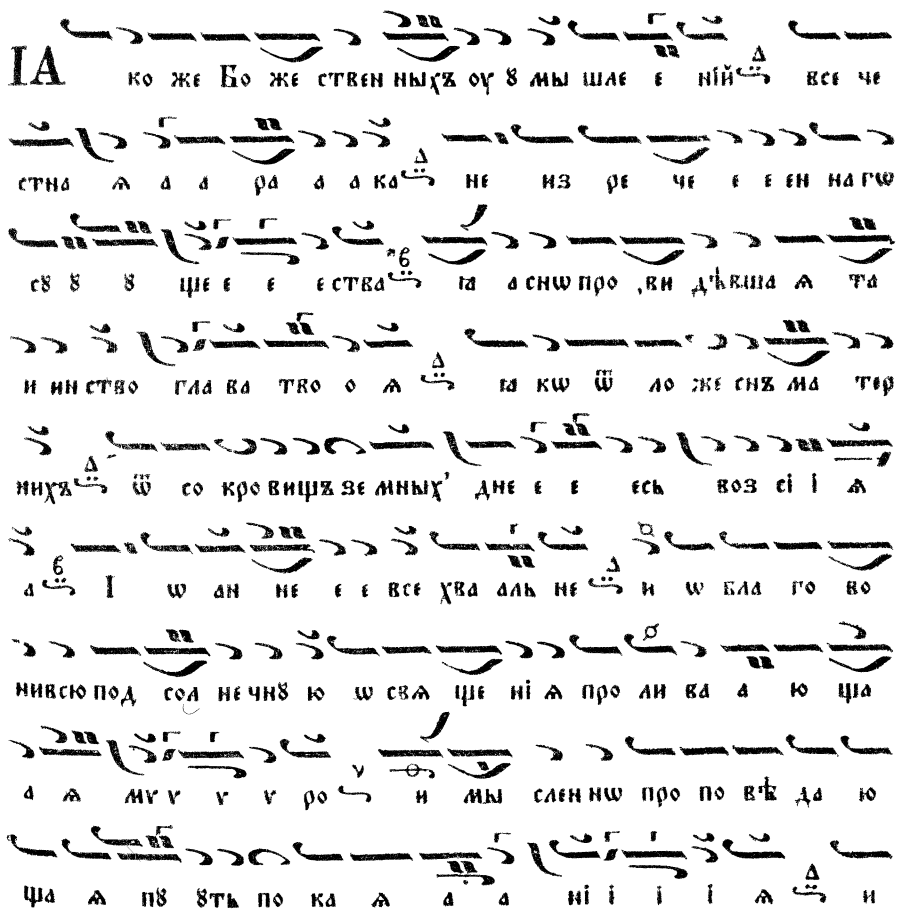 ІА ко же Бо же ствен ныхъ оу ꙋ мы шле е ній все че
стна ѧ а а ра а а ка не из ре че е е ен на гѡ
сꙋ ꙋ ꙋ ще е е е ства ꙗ а снѡ про ви дѣвша ѧ та
и ин ство гла ва тво о ѧ ꙗ кѡ ѿ ло же снъ ма тер
нихъ ѿ со кро вищъ зе мных' дне е е есь воз сі і ѧ
а І ѡ ан не е е все хва аль не и ѡ бла го во
нив сю под сол не чнꙋ ю ѡ свѧ ще ні ѧ про ли ва а ю ща
а ѧ мѵ ѵ ѵ ѵ ро и мы слен нѡ про по вѣ да ю
ща ѧ пꙋ ꙋть по ка ѧ а а ні і і і ѧ и